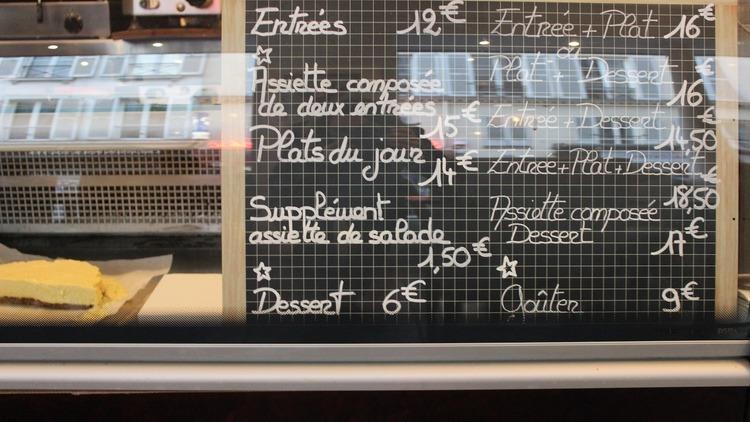 Entrées 12€
Assiette composée
de deux entrées
15€
Plats du jour
14€
Supplément
assiette de salade
1,50€
Dessert 6€
Entrée + Plat 16€
ou
Plat + Dessert
16€
Entrée + Dessert
14,50€
Entrée+Plat+Dessert
18,50€
Assiette composée
Dessert 17€
Goûter 9€